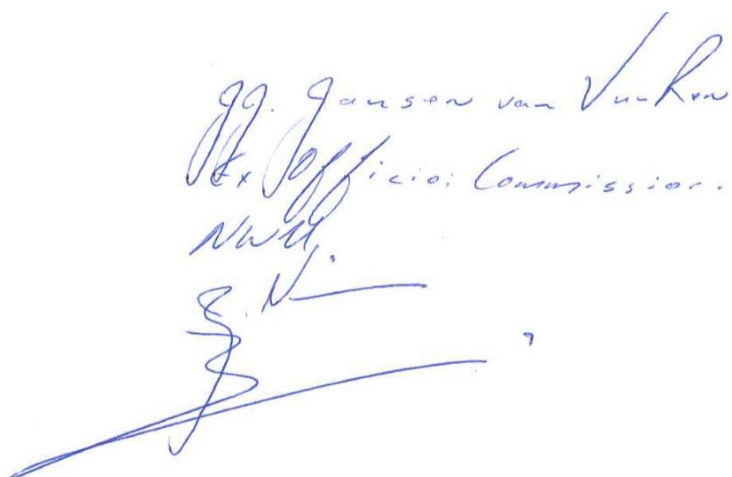 JJ. Jansen van Vuuren
Ex Officio: Commission.
NWU